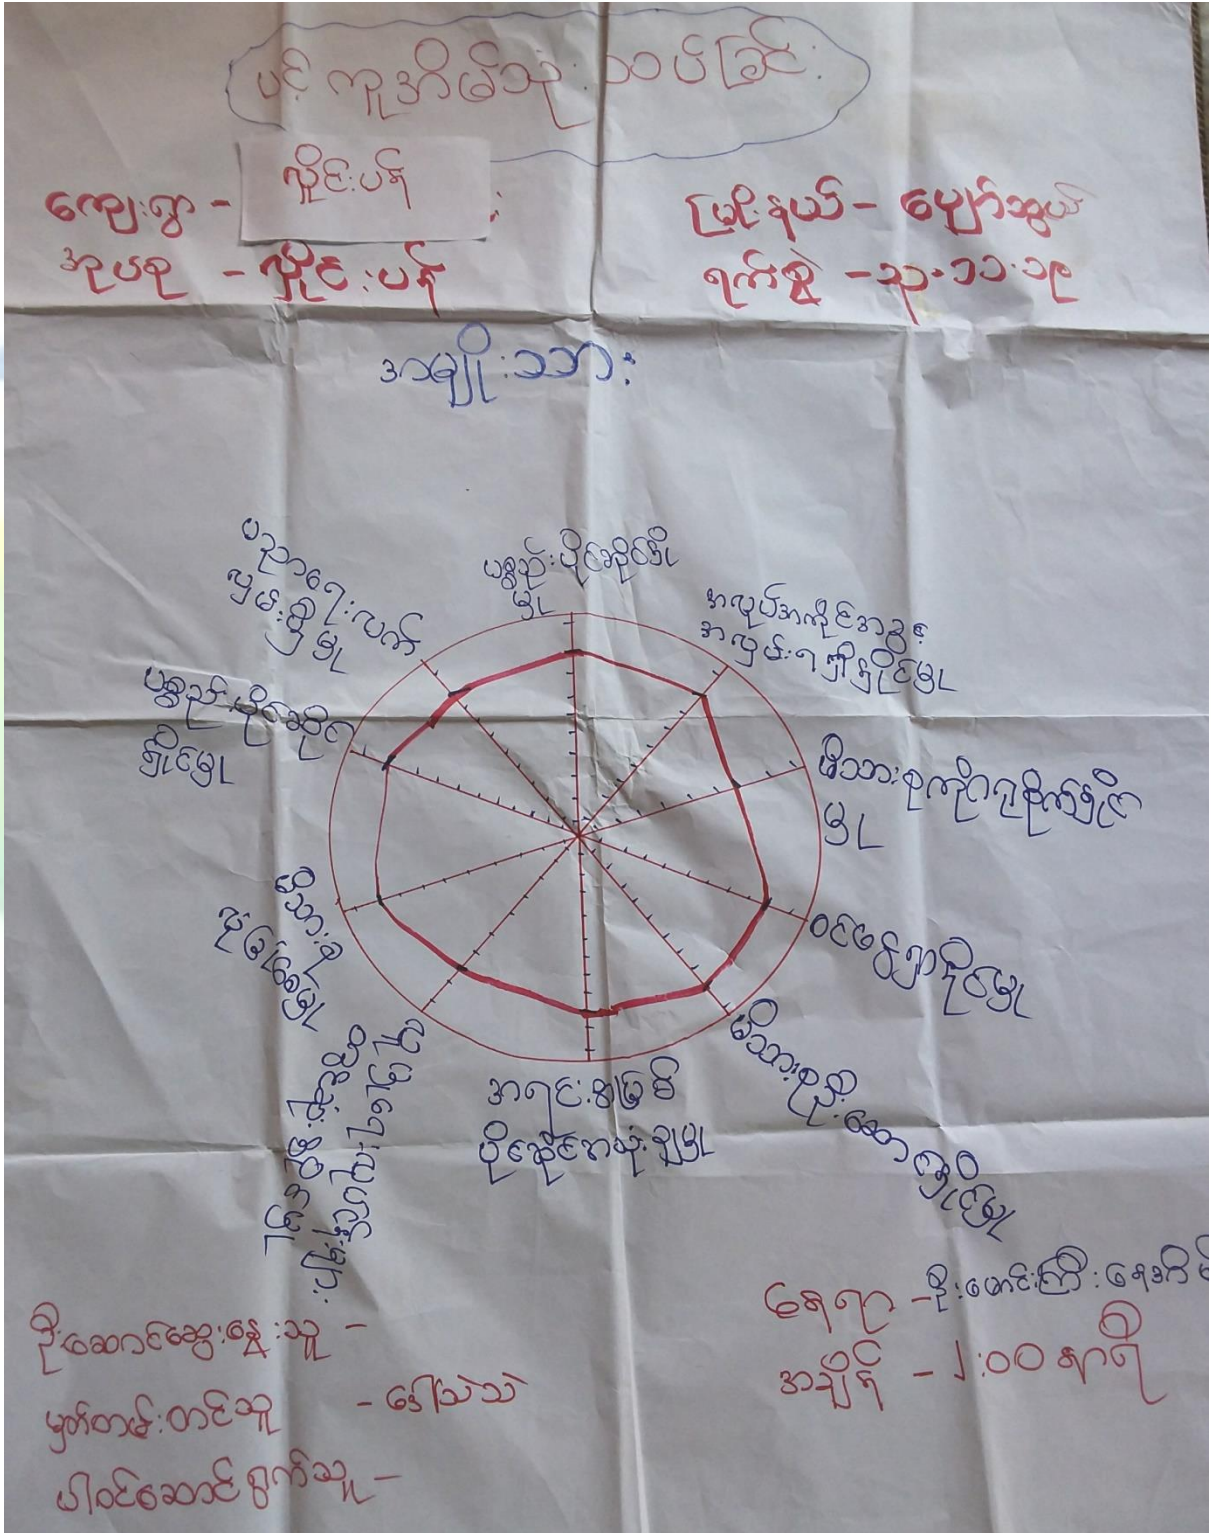 ပင့်ကူအိမ်သုံးသပ်ခြင်း
ကျေးရွာ - လှိုင်းပန်
အုပ်စု - လှိုင်းပန်
မြို့နယ် -
ရက်စွဲ - ၁၃.၁၁.၁၉
အမျိုးသား
ပစ္စည်းပိုင်ဆိုင်
မှု
အလုပ်အကိုင်အခွင့်
အလှမ်းရရှိနိုင်မှု
မိသားစုကို
မှု
ဝင်ငွေရှာနိုင်မှု
မိသားစုဦးဆောင်နိုင်မှု
အရင်းအမြစ်
ပိုင်ဆိုင်အသုံးချမှု
မိသားစု
လုံခြုံမှု
ပစ္စည်းပိုင်ဆိုင်
နိုင်မှု
ပညာရေးလက်
လှမ်းမီမှု
ဦးဆောင်ဆွေးနွေးသူ -
မှတ်တမ်းတင်သူ - ဒေါ်သဲသဲ
ပါဝင်ဆောင်ရွက်သူ -
နေရာ - ဦးမောင်ကြီးနေအိမ်
အချိန် - ၂:၀၀ နာရီ